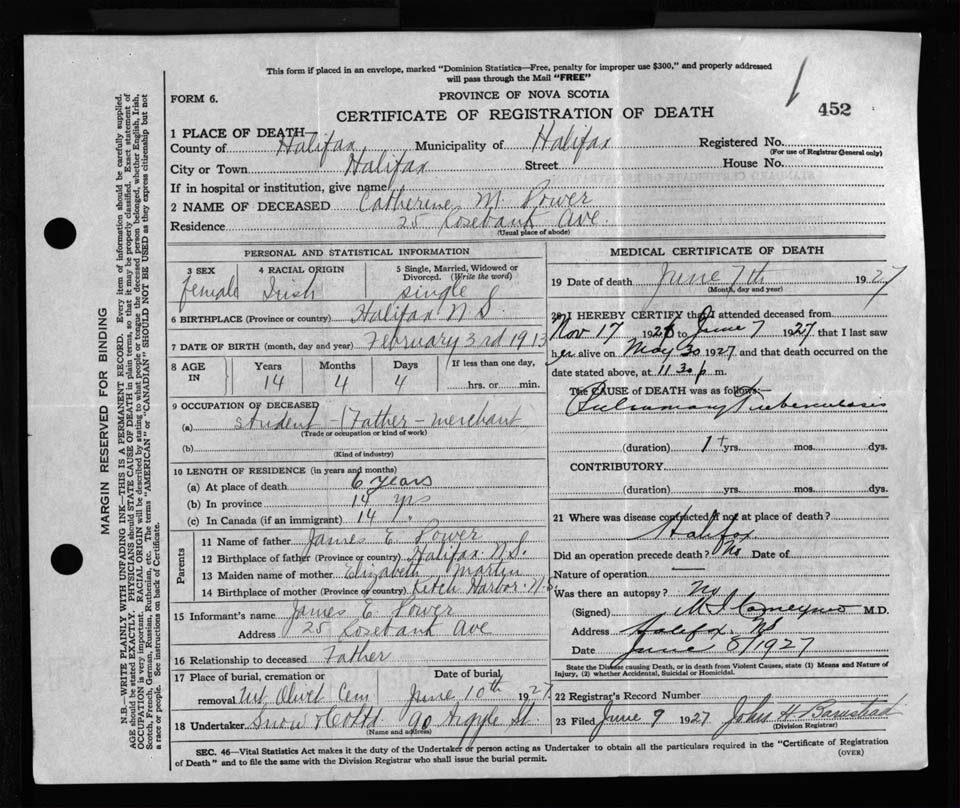 This form if placed in an envelope, marked "Dominion Statistics—Free, penalty for improper use $300," and properly addressed
will pass through the Mail "FREE"
PROVINCE OF NOVA SCOTIA
FORM 6.
CERTIFICATE OF REGISTRATION OF DEATH
452
1 PLACE OF DEATH
County of Halifax Municipality of Halifax Registered No.
(For use of Registrar General only)
City or Town Halifax Street House No.
If in hospital or institution, give name
2 NAME OF DECEASED Catherine M. Power
Residence 25 Rosebank Ave.
(Usual place of abode)
PERSONAL AND STATISTICAL INFORMATION
3 SEX 4 RACIAL ORIGIN 5 Single, Married, Widowed or Divorced. (Write the word)
female Irish single
6 BIRTHPLACE (Province or country) Halifax N.S.
7 DATE OF BIRTH (month, day and year) February 3rd 1913
8 AGE IN Years Months Days If less than one day,
14 4 4 hrs. or min.
9 OCCUPATION OF DECEASED
(a) student - (Father - merchant
(Trade or occupation or kind of work)
(b)
(Kind of industry)
10 LENGTH OF RESIDENCE (in years and months)
(a) At place of death 6 years
(b) In province 14 yrs
(c) In Canada (if an immigrant) 14 "
Parents
11 Name of father James E. Power
12 Birthplace of father (Province or country) Halifax N.S.
13 Maiden name of mother Elizabeth Martin
14 Birthplace of mother (Province or country) Ketch Harbor N.S.
15 Informant's name James E. Power
Address 25 Rosebank Ave
16 Relationship to deceased Father
17 Place of burial, cremation or removal Mt. Olivet Cem Date of burial June 10th 1927
18 Undertaker Snow & Co Ltd 90 Argyle St.
(Name and address)
MEDICAL CERTIFICATE OF DEATH
19 Date of death June 7th 1927
(Month, day and year)
20 I HEREBY CERTIFY that I attended deceased from
Nov 17 1926 to June 7 1927 that I last saw
her alive on May 30 1927 and that death occurred on the
date stated above, at 11.30 p.m.
The CAUSE of DEATH was as follows:—
Pulmonary Tuberculosis
(duration) 1+ yrs. mos. dys.
CONTRIBUTORY
(duration) yrs. mos. dys.
21 Where was disease contracted if not at place of death?
Halifax
Did an operation precede death? No Date of
Nature of operation —
Was there an autopsy? No
(Signed) M.D.
Address Halifax. NS
Date June 8/1927
State the Disease causing Death, or in death from Violent Causes, state (1) Means and Nature of
Injury, (2) whether Accidental, Suicidal or Homicidal.
22 Registrar's Record Number
23 Filed June 9 1927 John H.
(Division Registrar)
SEC. 46—Vital Statistics Act makes it the duty of the Undertaker or person acting as Undertaker to obtain all the particulars required in the "Certificate of Registration
of Death" and to file the same with the Division Registrar who shall issue the burial permit.
(OVER)
MARGIN RESERVED FOR BINDING
N.B.—WRITE PLAINLY WITH UNFADING INK—THIS IS A PERMANENT RECORD. Every item of information should be carefully supplied.
AGE should be stated EXACTLY. PHYSICIANS should STATE CAUSE OF DEATH in plain terms, so that it may be properly classified. Exact statement of
OCCUPATION is very important. RACIAL ORIGIN will be described by stating to what people or tongue the deceased person belonged, whether English, Irish,
Scotch, French, German, Russian, Ruthenian, etc. The terms "AMERICAN" or "CANADIAN" SHOULD NOT BE USED as they express citizenship but not
a race or people. See instructions on back of Certificate.